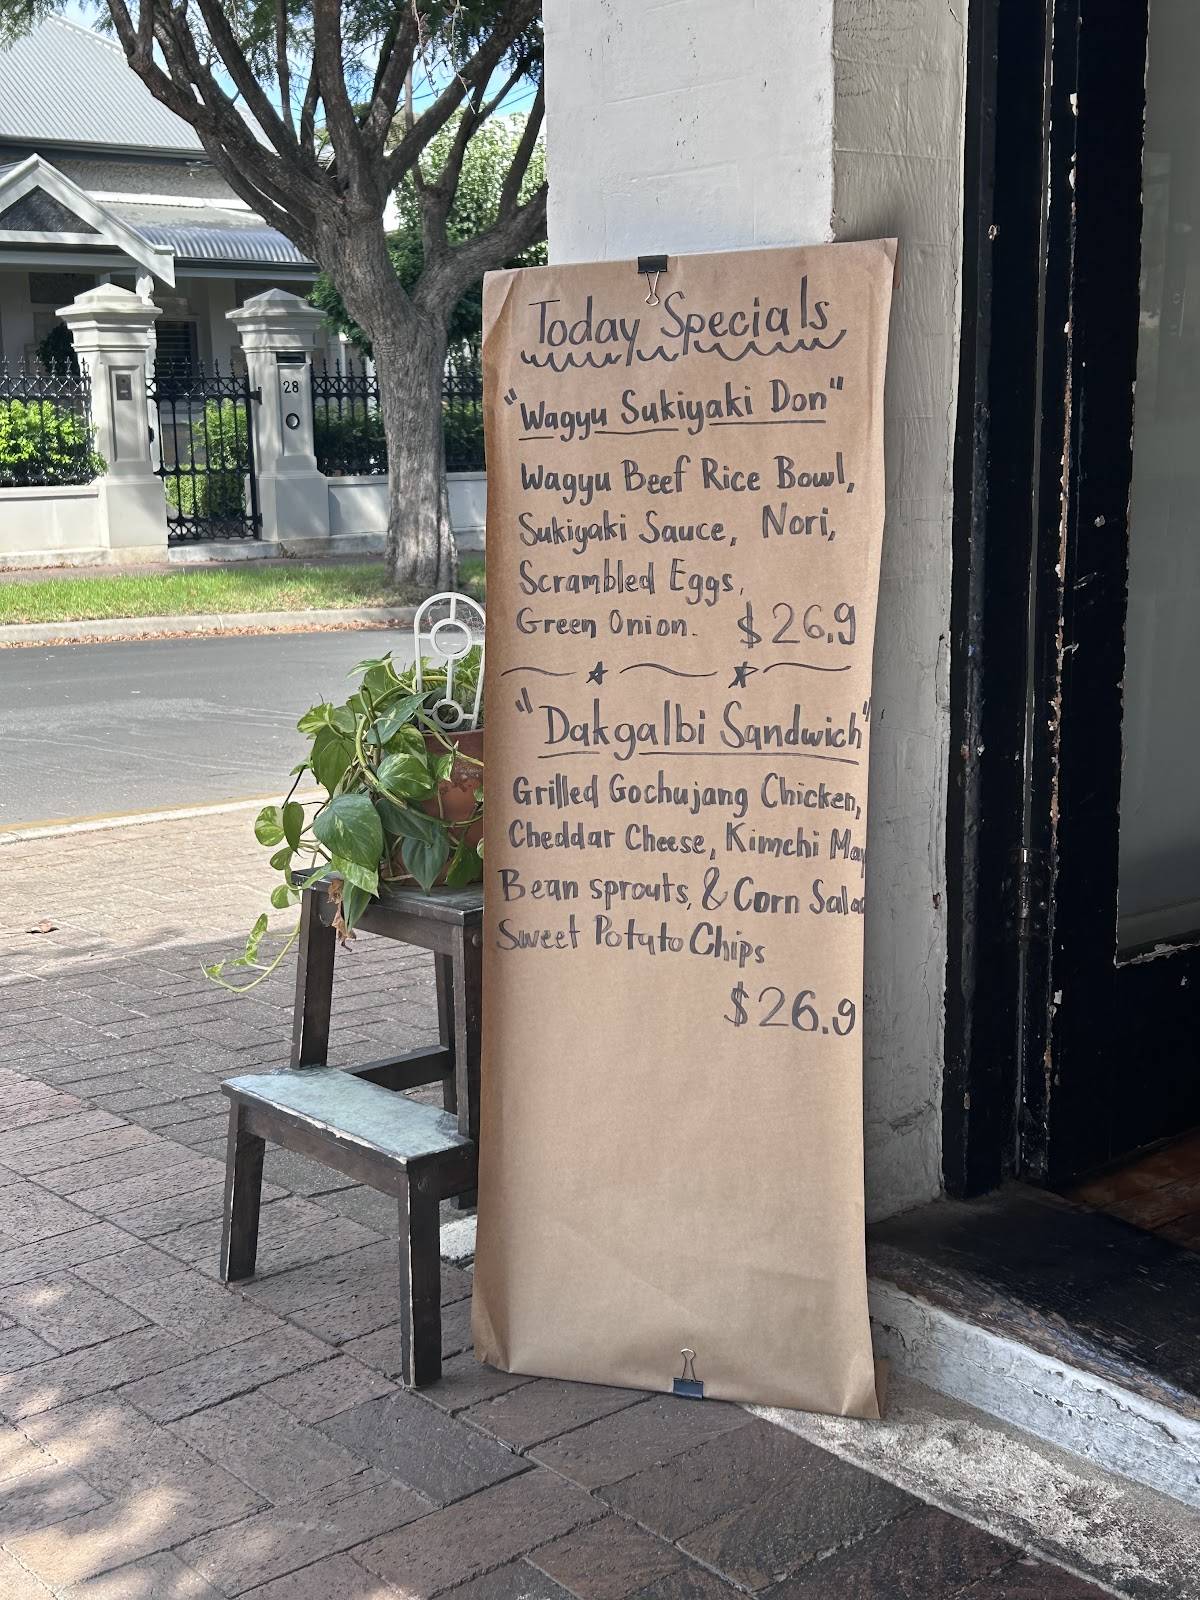 28
Today Specials
"Wagyu Sukiyaki Don"
Wagyu Beef Rice Bowl,
Sukiyaki Sauce, Nori,
Scrambled Eggs,
Green Onion. $26.9
"Dakgalbi Sandwich"
Grilled Gochujang Chicken,
Cheddar Cheese, Kimchi May
Bean sprouts, & Corn Salad
Sweet Potato Chips
$26.9